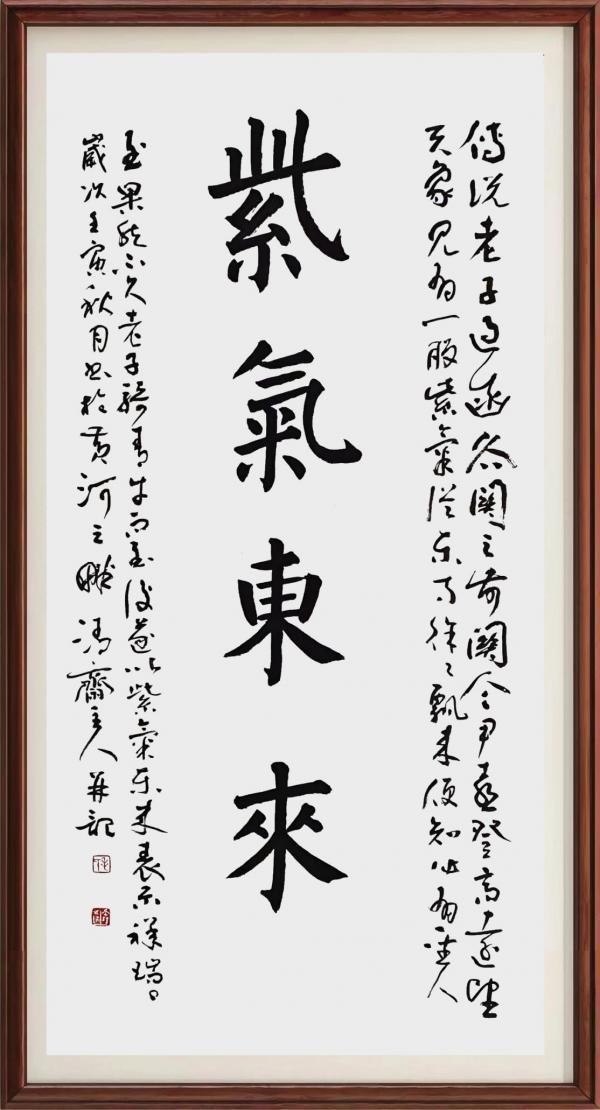 傳说老子过函谷關之前關令尹喜登高遠望
天象见有一股紫氣從东方徐々飘来便知必有聖人
紫氣東來
至果然不久老子騎青牛而至後遂以紫氣东来表示祥瑞。
歲次壬寅秋月书於黄河之畔 齋主人并記